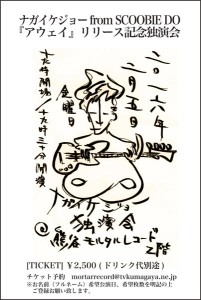 ナガイケジョー from SCOOBIE DO
『アウェイ』リリース記念独演会
二〇一六年
二月五日
金曜日
十九時開場/十九時三十分開演
ナガイケジョー
独演会
@熊谷モルタルレコード二階
[TICKET] ¥2,500 ( ドリンク代別途 )
チケット予約 mortarrecord@tvkumagaya.ne.jp
※お名前（フルネーム）希望公演日、希望枚数を明記の上
ご登録お願い致します。